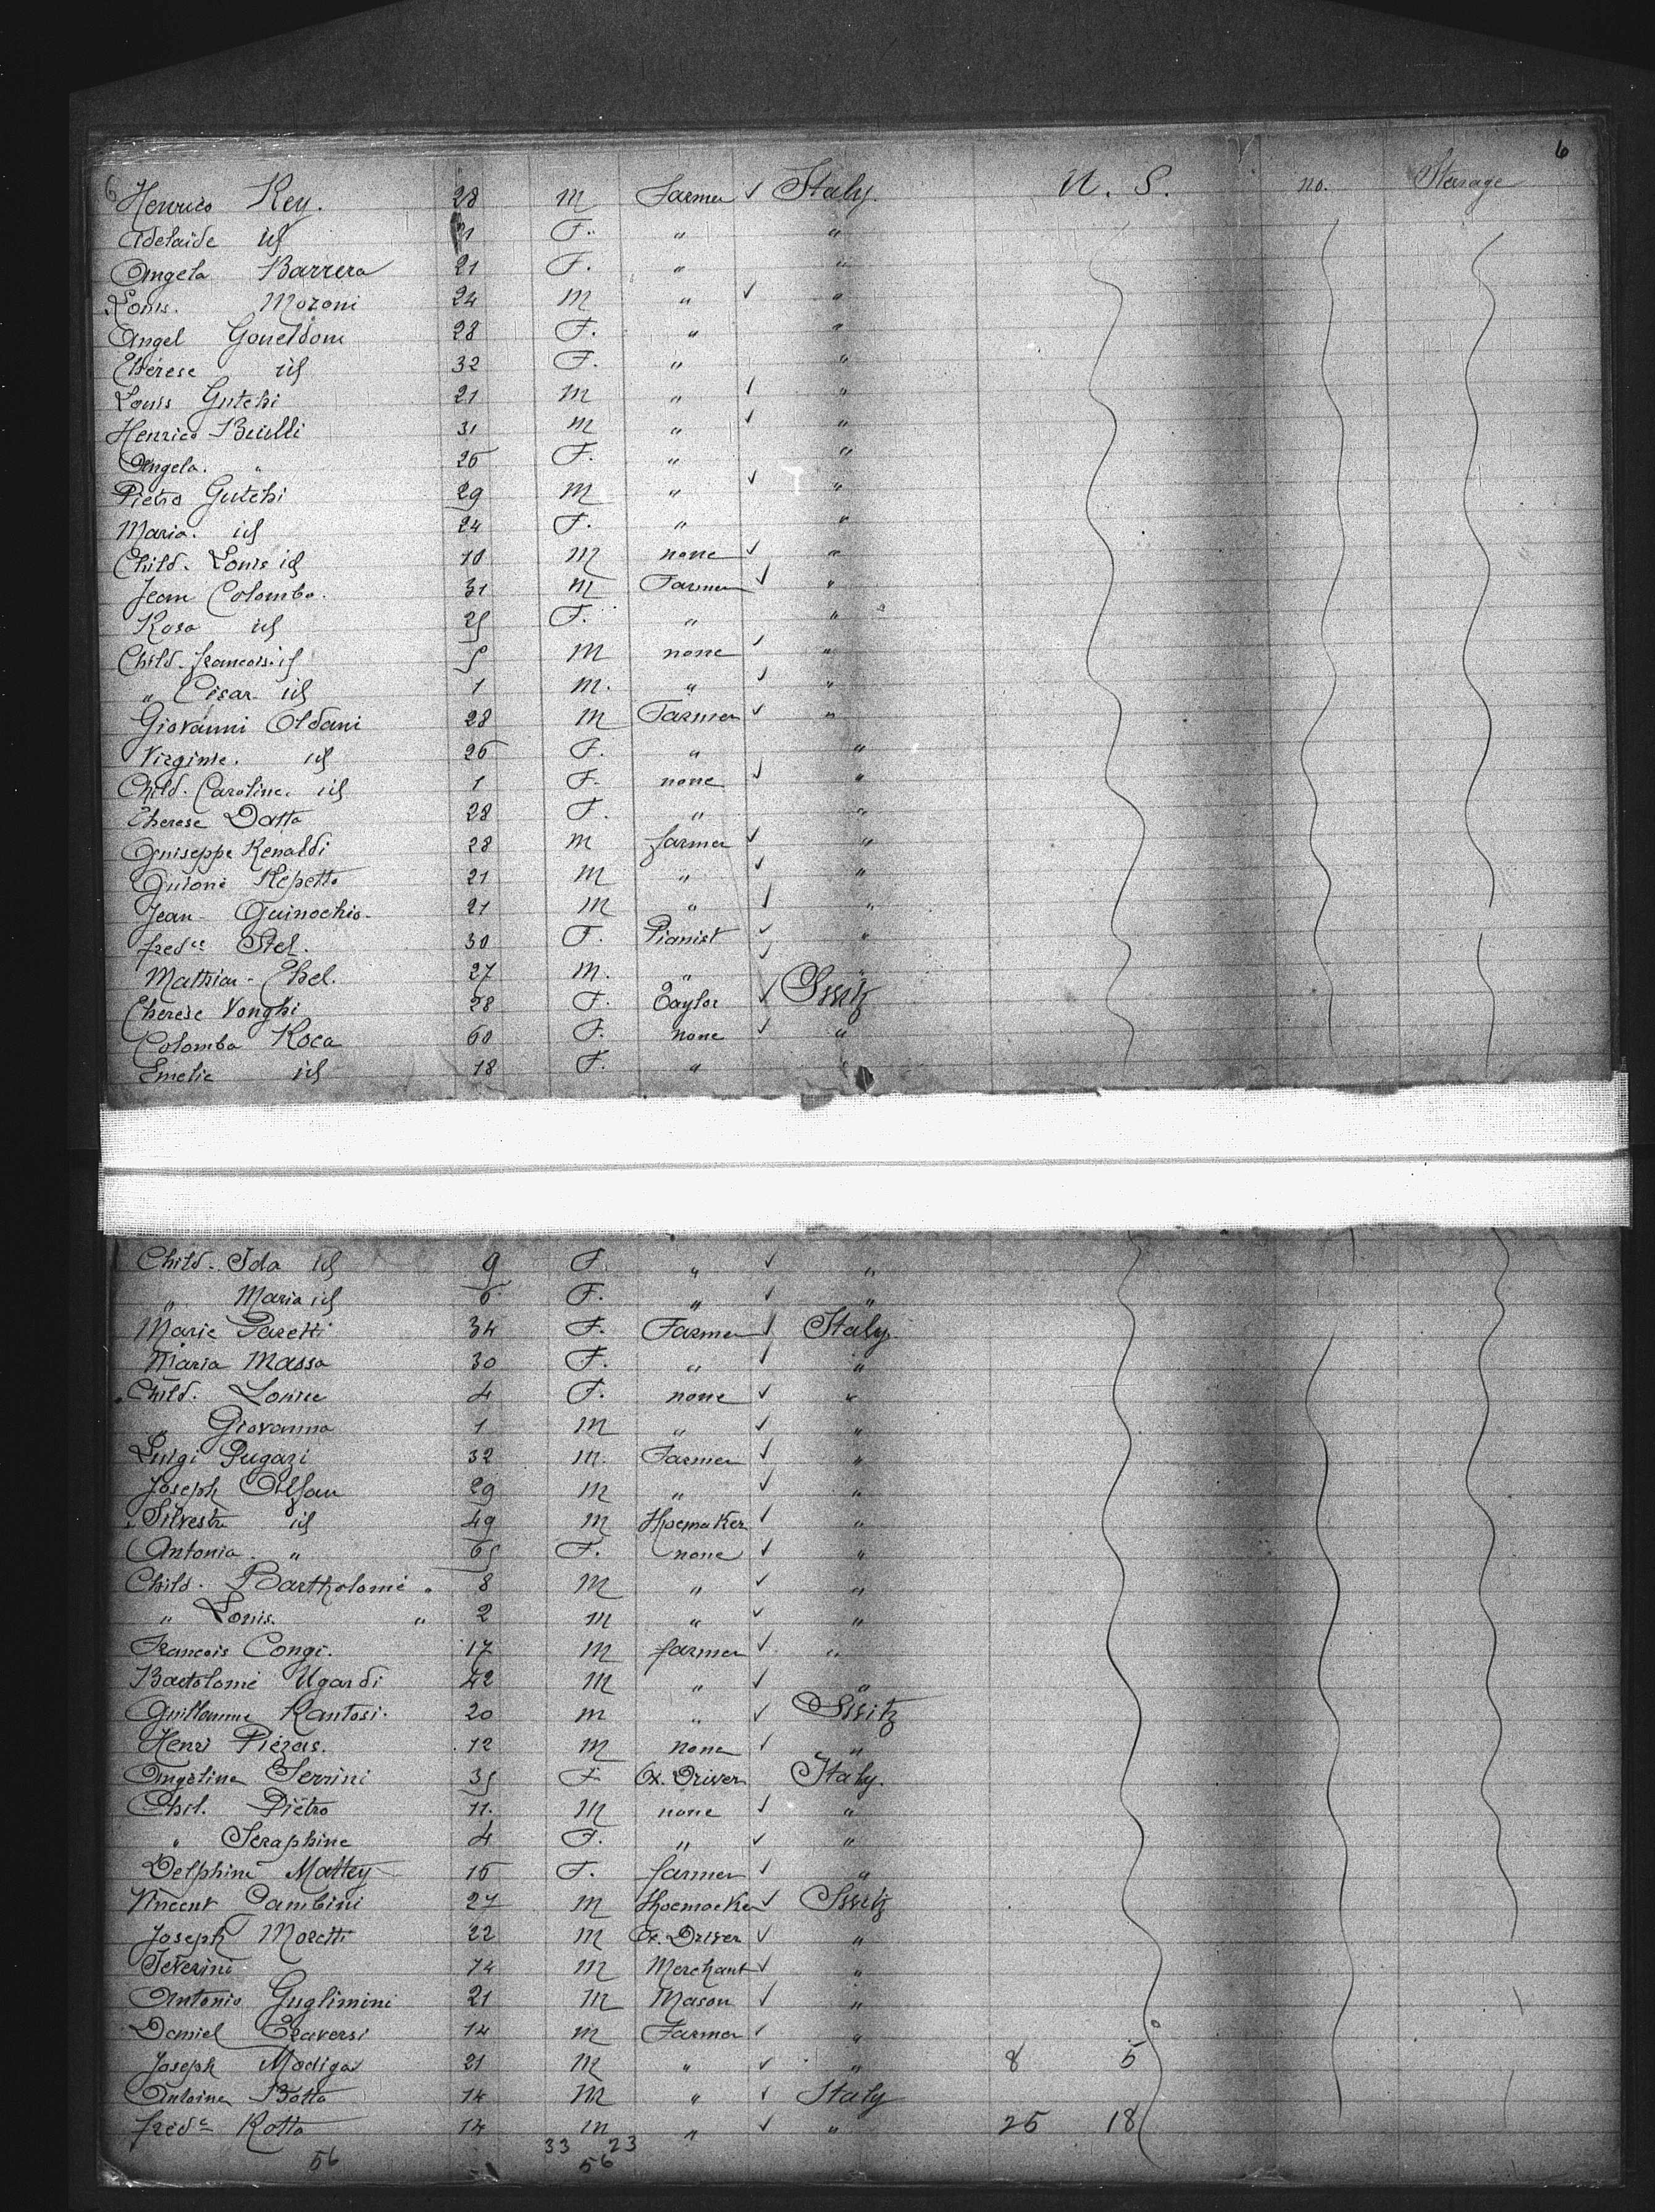 6
6 Henrico Rey. 28 M Farmer ✓ Italy. U. S. no. Sterage
Adelaide id 21 F. " "
Angela Barrera 21 F. " "
Louis. Mozoni 24 M " ✓ "
Angel 28 F. " "
Therese id 32 F. " "
Louis Gutchi 21 M " ✓ "
Henrico 31 M " ✓ "
Angela. " 26 F. " "
Pietro Gutchi 29 M " ✓ "
Maria. id 24 F. " "
Child. Louis id 10 M none ✓ "
Jean Colombo. 31 M Farmer ✓ "
Rosa id 25 F. " "
Child. francois. id 5 M none ✓ "
" Cesar id 1 M. " ✓ "
Giovanni Oldani 28 M Farmer ✓ "
Virginie. id 26 F. " "
Child. Caroline. id 1 F. none ✓ "
Therese Datta 28 F. " "
Guiseppe Renaldi 28 M farmer ✓ "
Repetto 21 M " ✓ "
Jean Guinochio 21 M " ✓ "
Stel. 30 F. Pianist ✓ "
Mathieu 27 M. " "
Therese Vonghi 28 F. Taylor ✓ Switz
Colomba Roca 60 F. none ✓ "
Emelie id 18 F. " "
Child. Ida id 9 F. " ✓ "
" Maria id 6 F. " ✓ "
Marie Paretti 34 F. Farmer ✓ Italy.
Maria Massa 30 F. " ✓ "
Child. Louise 4 F. none ✓ "
" Giovanna 1 M " ✓ "
Luigi Pugazi 32 M. Farmer ✓ "
Joseph 29 M " ✓ "
Silvestre id 49 M Shoemaker ✓ "
Antonia " 65 F. none ✓ "
Child. Bartholomé " 8 M " ✓ "
" Louis. " 2 M " ✓ "
Francois Congi. 17 M farmer ✓ "
Bartolomé Ugardi 42 M " ✓ "
Guillaume Rantosi. 20 M " ✓ Switz
Henri 12 M none ✓ "
Angeline Serrini 35 F Ox. Driver Italy.
Chil. Piétro 11. M none ✓ "
" Seraphine 4 F. " ✓ "
Delphine Mattey 16 F. farmer ✓ "
Vincent Pambini 27 M Shoemacker ✓ Switz
Joseph Moretti 22 M Ox. Driver ✓ "
Severini 14 M Merchant ✓ "
Antonio Guglimini 21 M Mason ✓ "
Daniel Traversi 14 M Farmer ✓ "
Joseph Madiga 21 M " ✓ " 8 5
Antoine Botta 14 M " ✓ Italy
Rotta 14 M " ✓ " 25 18
33 23
56 56